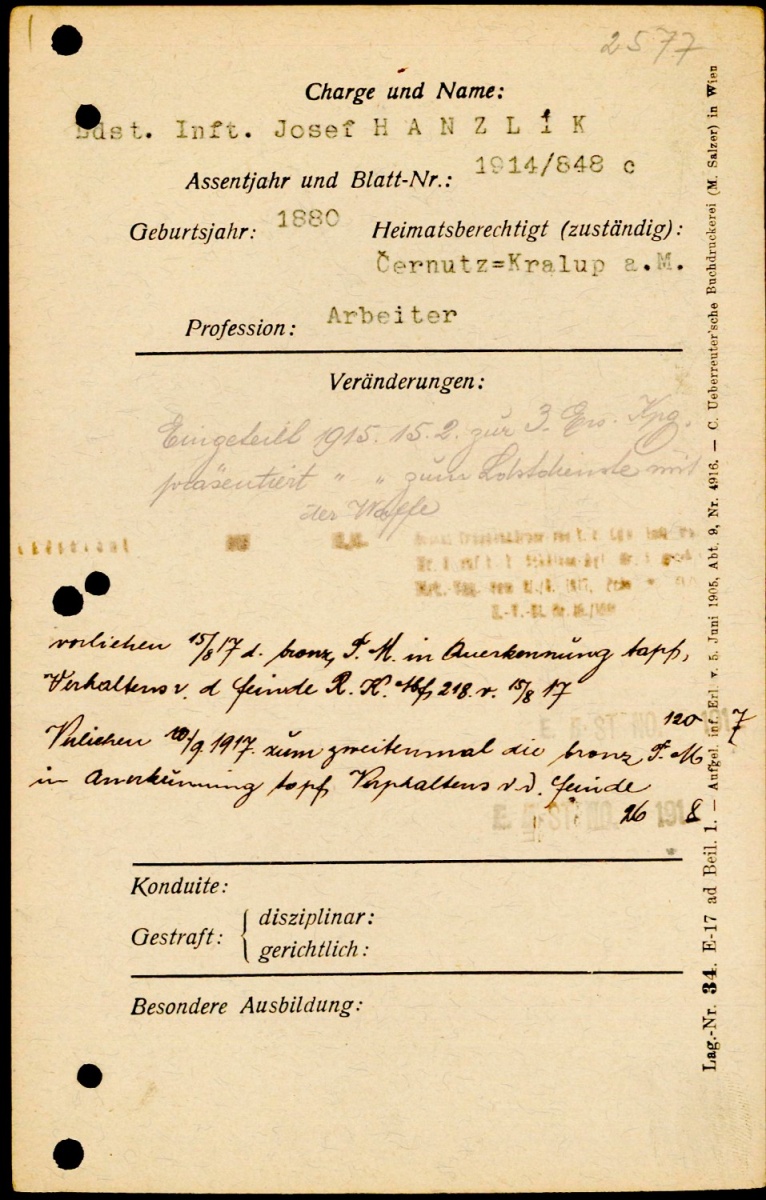 2577
Charge und Name:
Ldst. Inft. Josef HANZLÍK
Assentjahr und Blatt-Nr.: 1914/848 c
Geburtsjahr: 1880 Heimatsberechtigt (zuständig):
Černutz=Kralup a.M.
Profession: Arbeiter
Veränderungen:
Eingeteilt 1915. 15.2. zur 3. Ers. Kpg.
präsentiert " " zum Ldstdienste mit
der Waffe
verliehen 15/8 17 d. bronz. T. M. in Anerkennung tapf.
Verhaltens v. d Feinde R. K. Abf 218. v. 15/8 17
Verliehen 10/9. 1917. zum zweitenmal die bronz T. M
in Anerkennung tapf Verphaltens v. d. Feinde
E. B. ST. NO. 120 1917
E. B. ST. NO. 26 1918
Konduite:
Gestraft: { disziplinar:
gerichtlich:
Besondere Ausbildung:
Lag.-Nr. 34. E-17 ad Beil. 1. — Aufgel. inf. Erl. v. 5. Juni 1905, Abt. 9, Nr. 4916. — C. Ueberreuter'sche Buchdruckerei (M. Salzer) in Wien